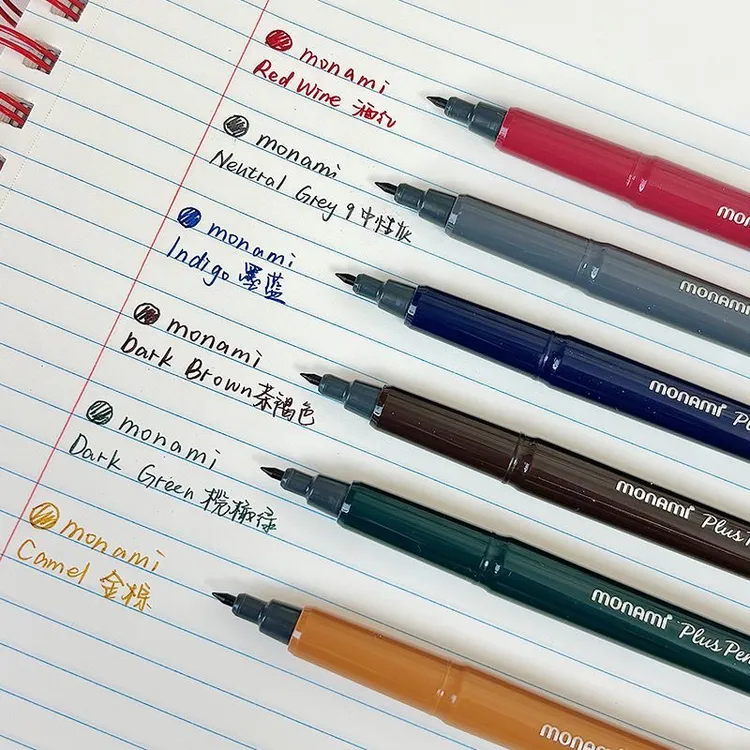 monami
Red Wine 酒红
monami
Neutral Grey 9 中性灰
monami
Indigo 墨蓝
monami
Dark Brown 茶褐色
monami
Dark Green 榄橄绿
monami
Camel 金棕
monami
monami
monami
monami Plus
monami Plus Pen
monami